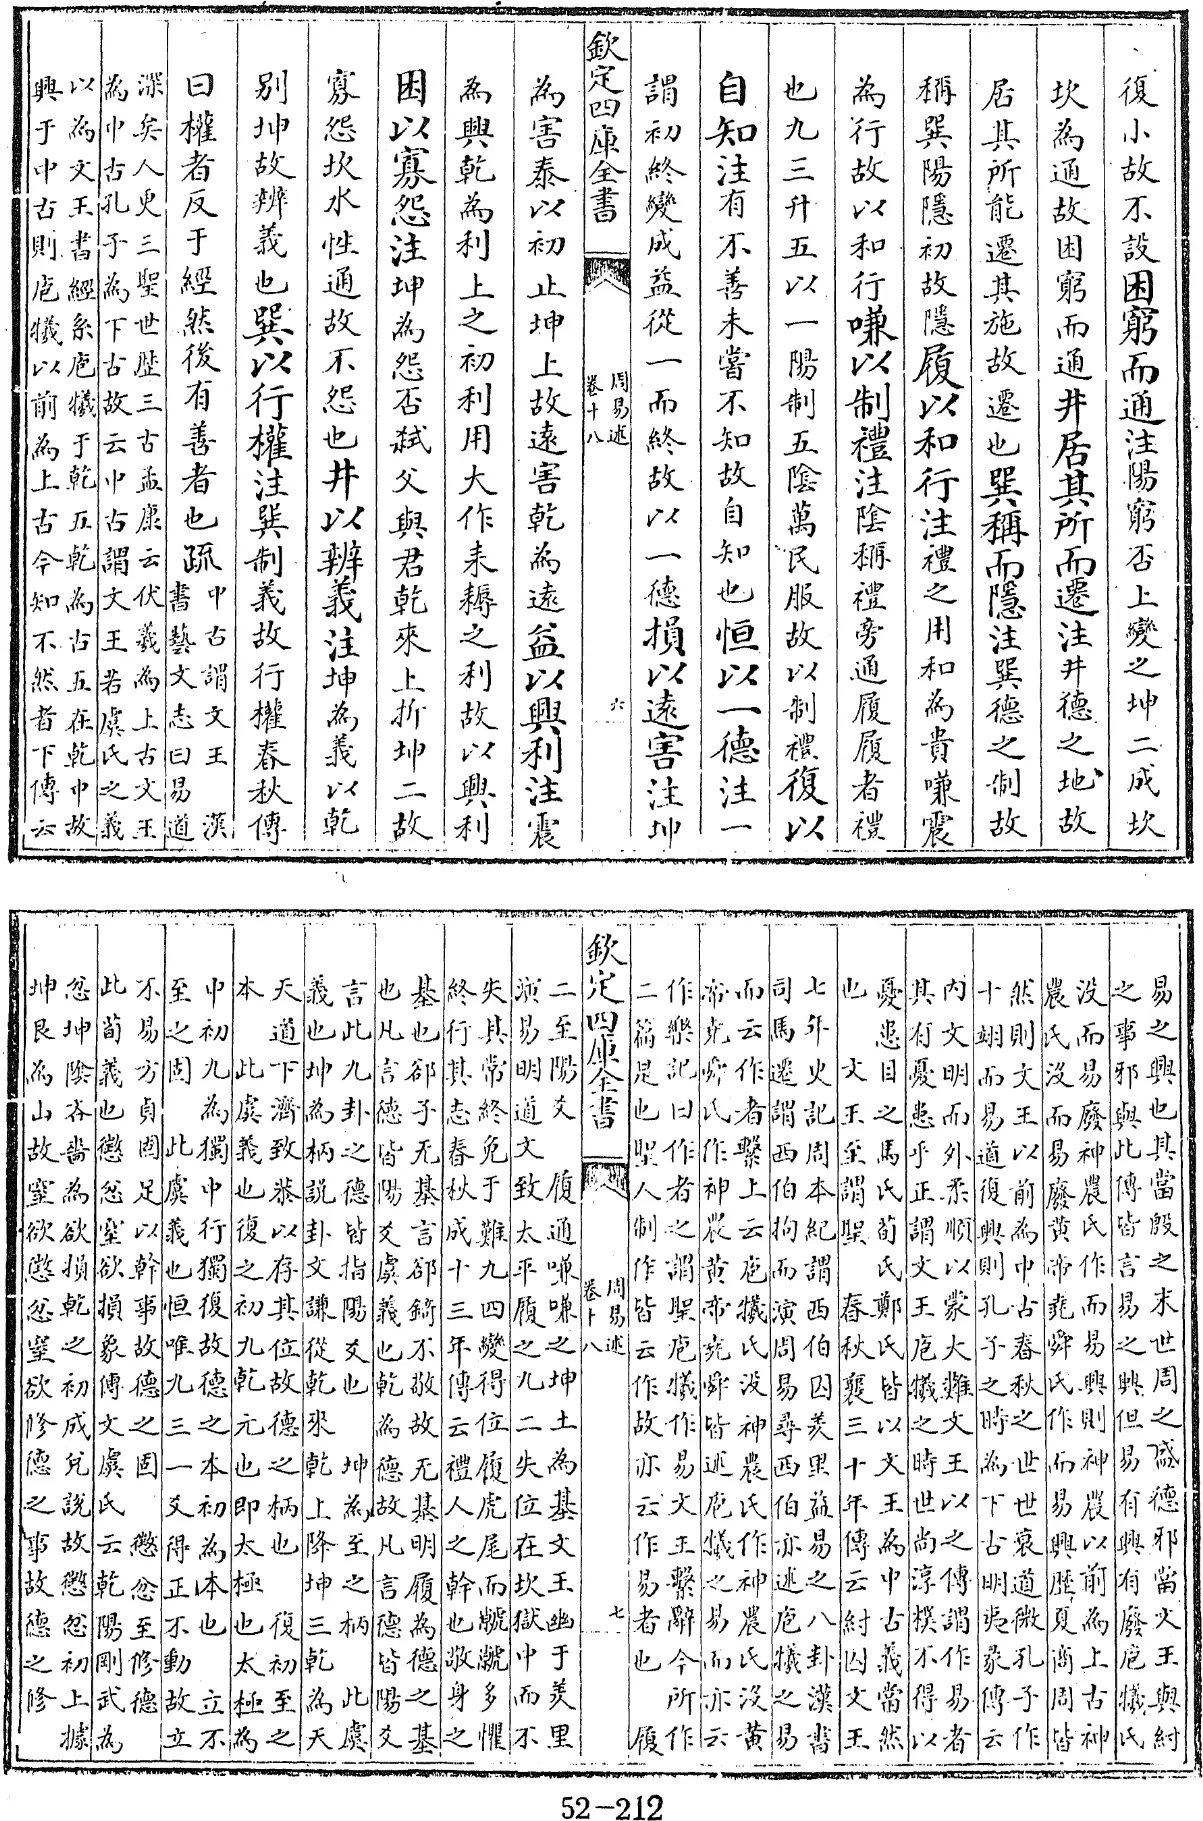 復小故不設困窮而通注陽窮否上變之坤二成坎
坎為通故困窮而通井居其所而遷注井德之地故
居其所能遷其施故遷也巽稱而隱注巽德之制故
稱巽陽隱初故隱履以和行注禮之用和為貴嗛震
為行故以和行嗛以制禮注陰稱禮旁通履履者禮
也九三升五以一陽制五陰萬民服故以制禮復以
自知注有不善未嘗不知故自知也恒以一德注一
謂初終變成益從一而終故以一德損以遠害注坤
欽定四庫全書
周易述
卷十八
六
為害泰以初止坤上故遠害乾為遠益以興利注震
為興乾為利上之初利用大作耒耨之利故以興利
困以寡怨注坤為怨否弒父與君乾來上折坤二故
寡怨坎水性通故不怨也井以辨義注坤為義以乾
別坤故辨義也巽以行權注巽制義故行權春秋傳
曰權者反于經然後有善者也疏
中古謂文王 漢
書藝文志曰易道
深矣人更三聖世歷三古孟康云伏羲為上古文王
為中古孔子為下古故云中古謂文王若虞氏之義
以為文王書經系庖犧于乾五乾為古五在乾中故
興于中古則庖犧以前為上古今知不然者下傳云
易之興也其當殷之末世周之盛德邪當文王與紂
之事邪與此傳皆言易之興但易有興有廢庖犧氏
沒而易廢神農氏作而易興則神農以前為上古神
農氏沒而易廢黃帝堯舜氏作而易興歷夏商周皆
然則文王以前為中古春秋之世世衰道微孔子作
十翊而易道復興則孔子之時為下古明夷彖傳云
內文明而外柔順以蒙大難文王以之傳謂作易者
其有憂患乎正謂文王庖犧之時世尚淳樸不得以
憂患目之馬氏荀氏鄭氏皆以文王為中古義當然
也 文王至謂聖 春秋襄三十年傳云紂囚文王
七年史記周本紀謂西伯囚羑里益易之八卦漢書
司馬遷謂西伯拘而演周易尋西伯亦述庖犧之易
而云作者繫上云庖犧氏沒神農氏作神農氏沒黃
帝堯舜氏作神農黃帝堯舜皆述庖犧之易而亦云
作樂記曰作者之謂聖庖犧作易文王繫辭今所作
二篇是也聖人制作皆云作故亦云作易者也 履
欽定四庫全書
周易述
卷十八
七
二至陽爻 履通嗛嗛之坤土為基文王幽于羑里
演易明道文致太平履之九二失位在坎獄中而不
失其常終免于難九四變得位履虎尾而虩虩多懼
終行其志春秋成十三年傳云禮人之幹也敬身之
基也郤子无基言郤錡不敬故无基明履為德之基
也凡言德皆陽爻虞義也乾為德故凡言德皆陽爻
言此九卦之德皆指陽爻也 坤為至之柄 此虞
義也坤為柄說卦文謙從乾來乾上降坤三乾為天
天道下濟致恭以存其位故德之柄也 復初至之
本 此虞義也復之初九乾元也即太極也太極為
中初九為獨中行獨復故德之本初為本也 立不
至之固 此虞義也恒唯九三一爻得正不動故立
不易方貞固足以幹事故德之固 懲忿至修德
此荀義也懲忿窒欲損象傳文虞氏云乾陽剛武為
忿坤陰吝嗇為欲損乾之初成兌說故懲忿初上據
坤艮為山故窒欲懲忿窒欲修德之事故德之修
52-212